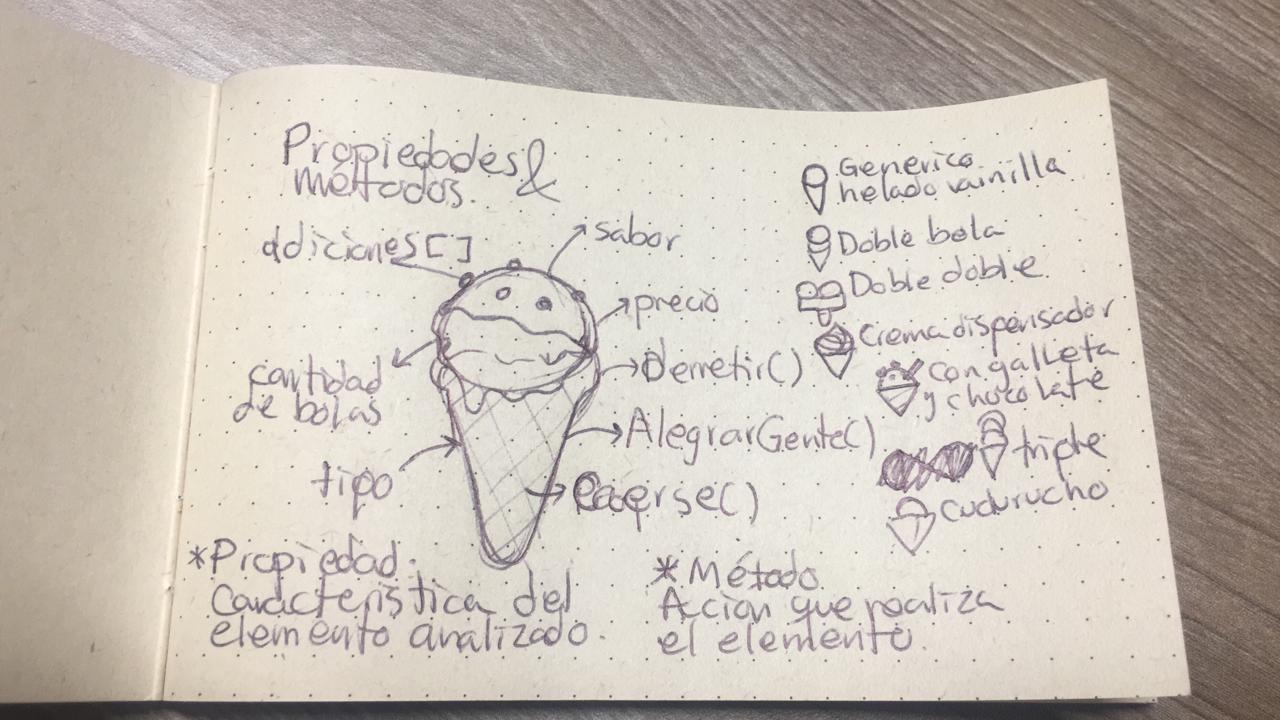 Propiedades &
métodos.
adiciones[]
sabor
precio
cantidad
de bolas
Derretir()
AlegrarGente()
tipo
Caerse()
Generico
helado vainilla
Doble bola
Doble doble
Crema dispensador
con galleta
y chocolate
triple
Cucurucho
*Propiedad.
Característica del
elemento analizado.
*Método.
Acción que realiza
el elemento.